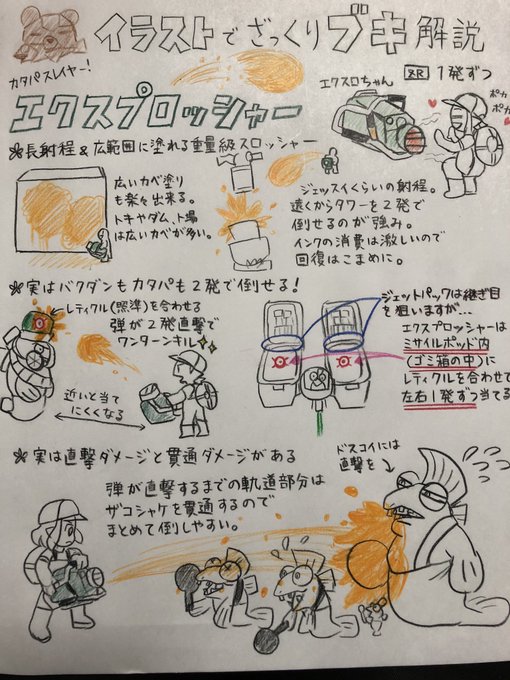 イラストでざっくりブキ解説
カタパスレイヤー!
エクスプロッシャー
エクスロちゃん
ZR 1発ずつ
ポカ
ポカ
※長射程&広範囲に塗れる重量級スロッシャー
広いカベ塗り
も楽々出来る。
トキヤダム、ト場
は広いカベが多い。
ジェッスイくらいの射程。
遠くからタワーを2発で
倒せるのが強み。
インクの消費は激しいので
回復はこまめに。
※実はバクダンもカタパも2発で倒せる!
レティクル(照準)を合わせる
弾が2発直撃で
ワンターンキル
近いと当て
にくくなる
ジェットパックは継ぎ目
を狙いますが…
エクスプロッシャーは
ミサイルポッド内
(ゴミ箱の中)に
レティクルを合わせて
左右1発ずつ当てる
※実は直撃ダメージと貫通ダメージがある
弾が直撃するまでの軌道部分は
ザコシャケを貫通するので
まとめて倒しやすい。
ドスコイには
直撃を